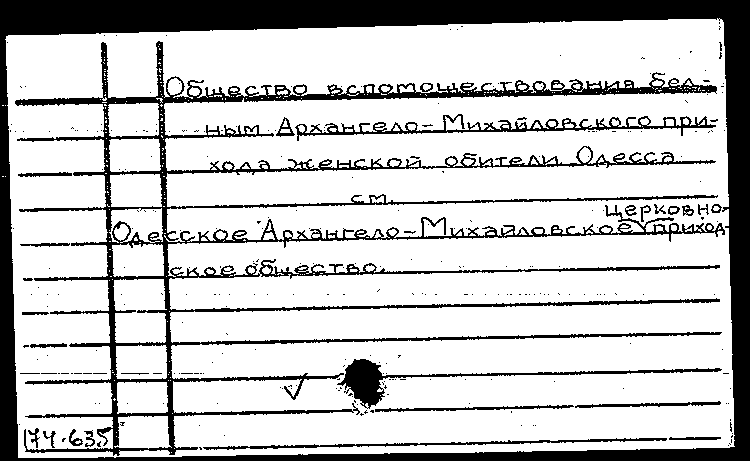 Общество вспомоществования бед-
ным Архангело-Михайловского при-
хода женской обители Одесса
см.
церковно-
Одесское Архангело-Михайловское приход-
ское общество.
174.635